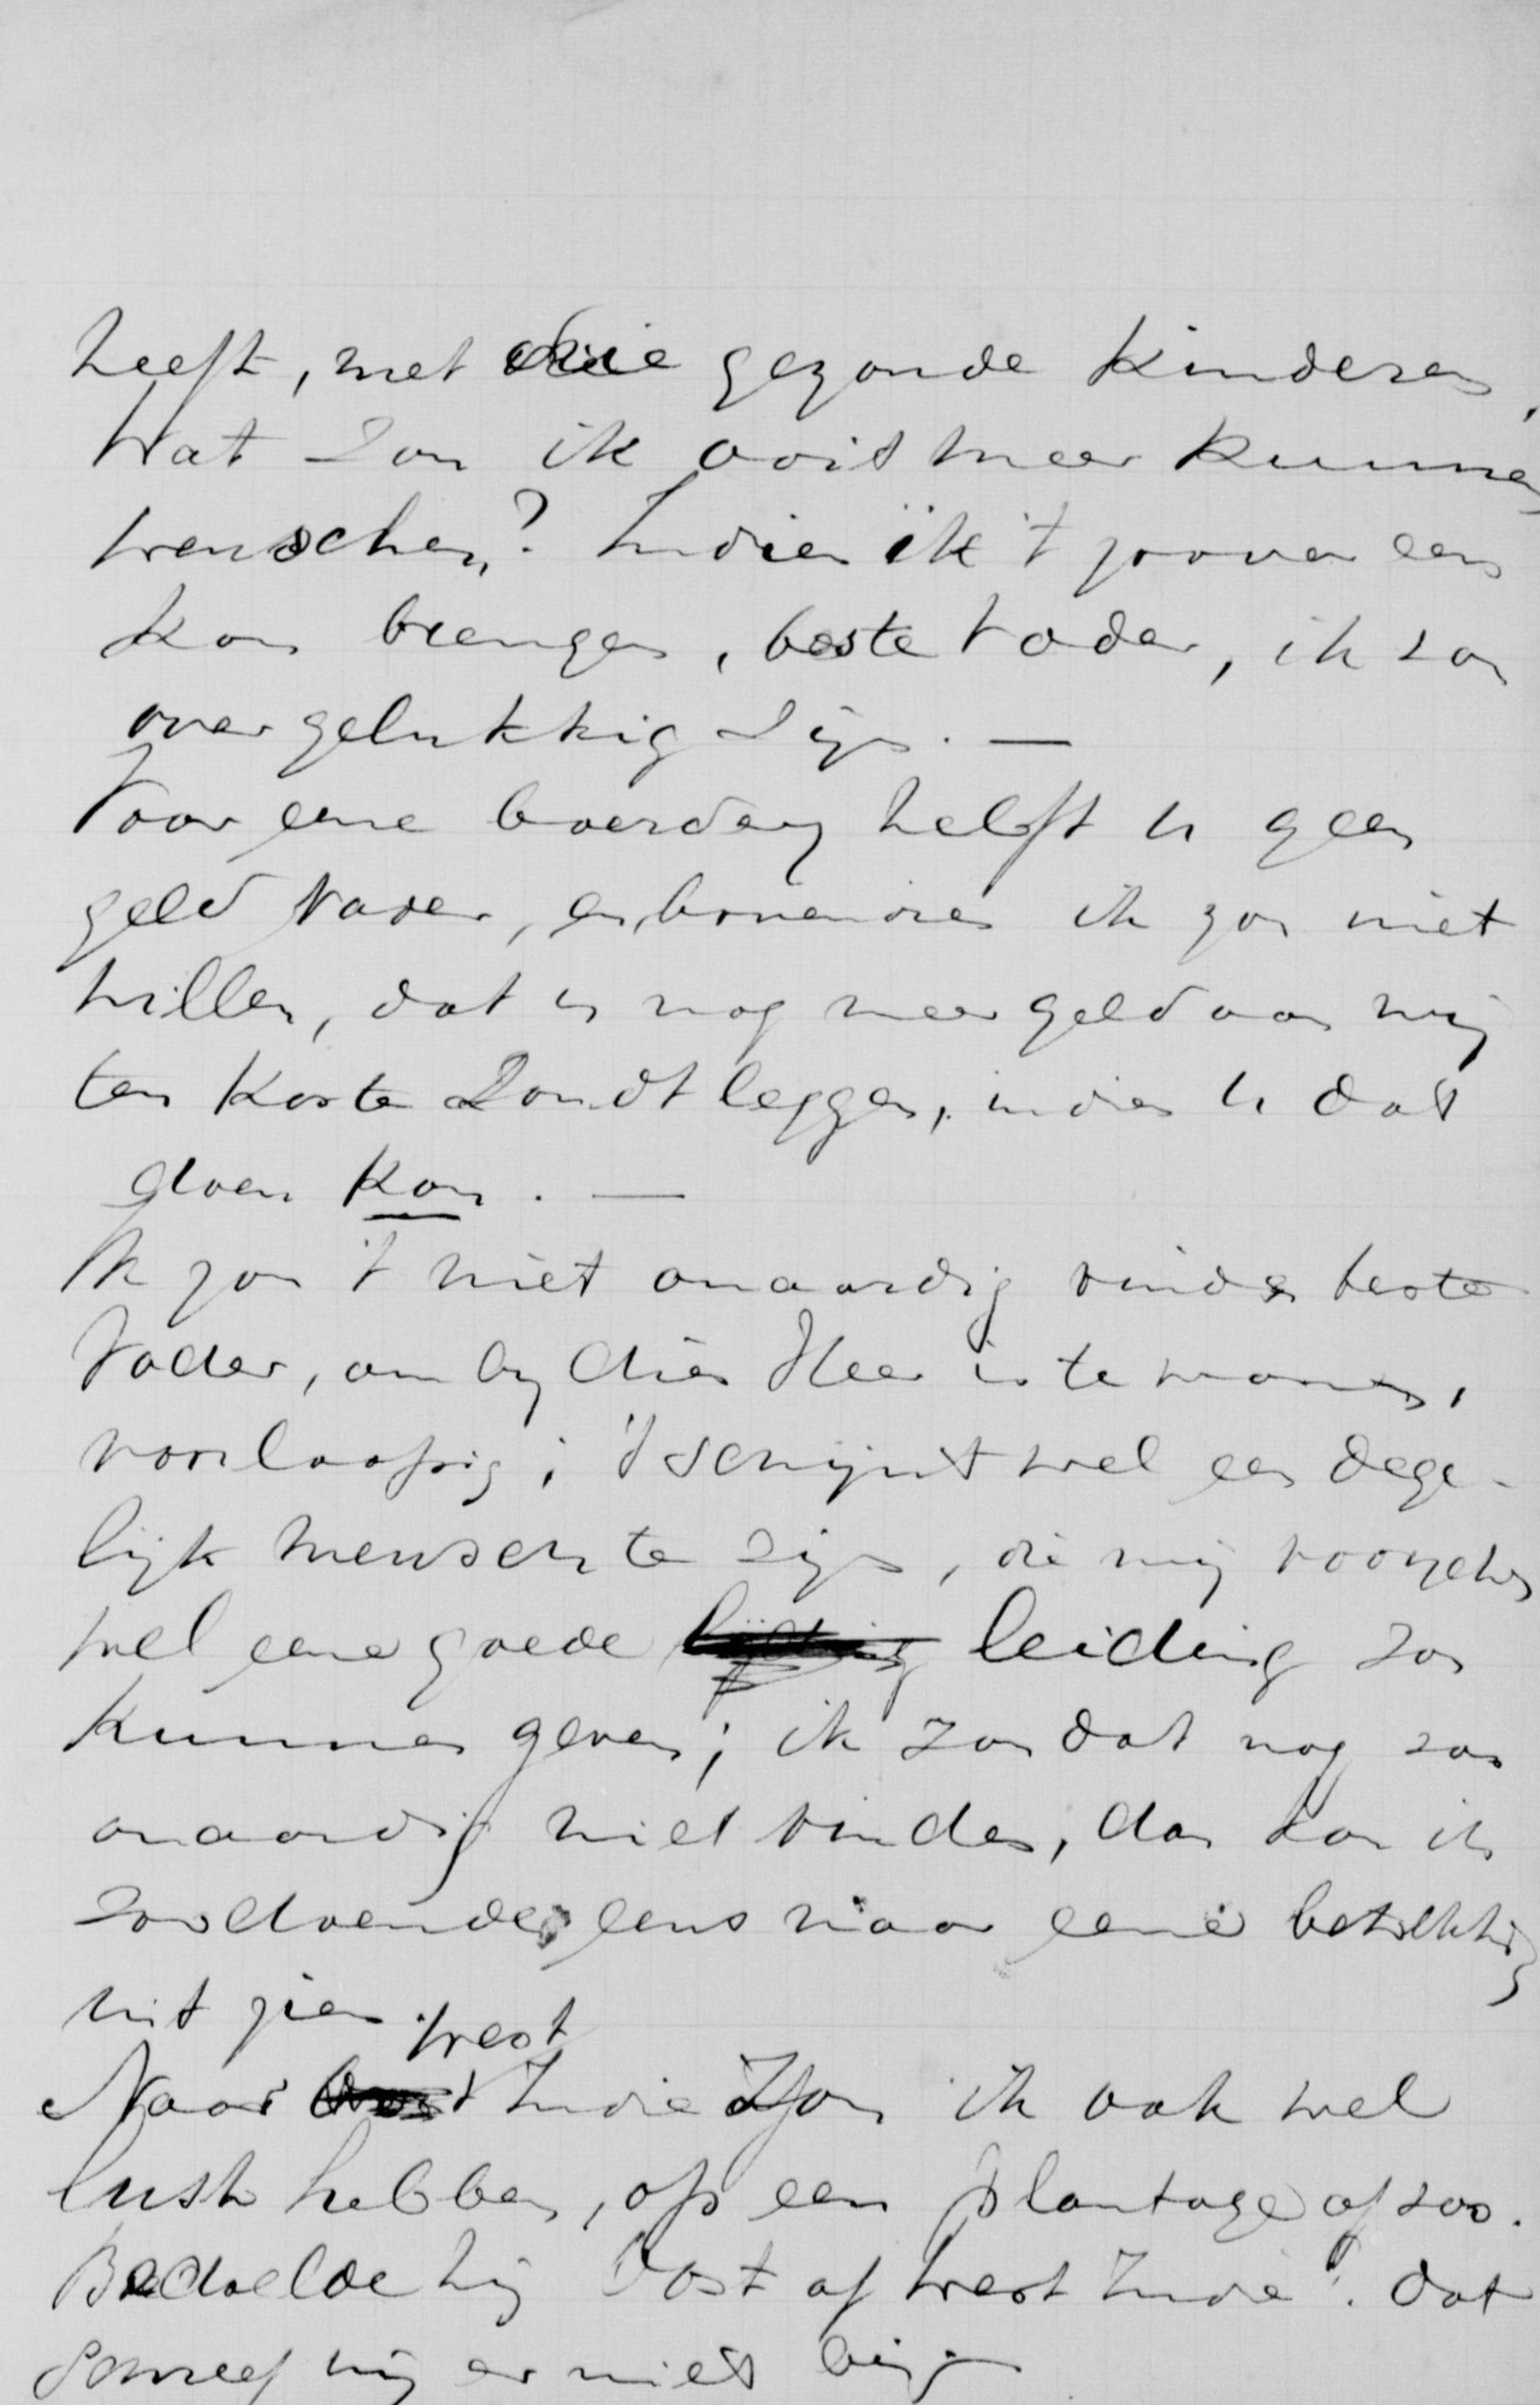 heeft, met drie gezonde kinderen,
Wat zou ik ooit meer kunnen
wenschen? Indien ik 't zoover eens
kon brengen, beste Vader, ik zou
overgelukkig zijn. —
Voor eene boerderij heeft u geen
geld Vader, en bovendien ik zou niet
willen, dat u nog meer geld aan mij
ten koste zoudt leggen, indien u dat
doen kon. —
Ik zou 't niet onaardig vinden beste
Vader, om bij dien Heer in te wonen,
voorloopig; 't schijnt wel een dege-
lijk mensch te zijn, die mij
wel eene goede leiding zou
kunnen geven; ik zou dat nog zoo
onaardig niet vinden, dan kon ik
zoodoende eens naar eene betrekking
uit zien.
Naar West Indie zou ik ook wel
lust hebben, op een plantage of zoo.
Bedoelde hij Oost of West Indie? dat
schreef hij er niet bij. —